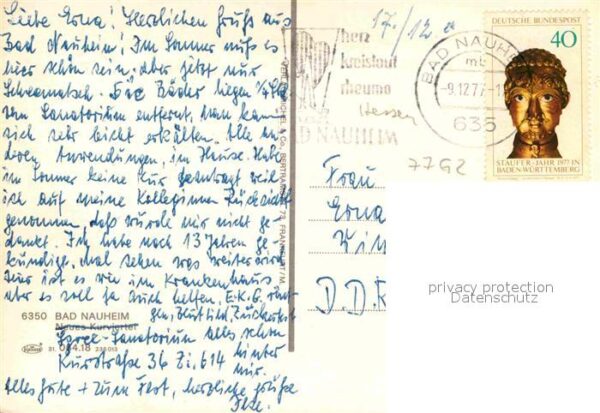 Liebe Erna! Herzlichen Gruß aus
Bad Nauheim! Im Sommer muß es
hier schön sein, aber jetzt nur
Schneematsch. Die Bäder liegen
vom Sanatorium entfernt. Man kann
sich sehr leicht erkälten. Alle an-
deren Anwendungen, im Hause. Habe
im Sommer keine Kur beantragt weil
ich auf meine Kolleginnen Rücksicht
genommen, daß wurde mir nicht ge-
dankt. Ich habe nach 13 Jahren ge-
kündigt, mal sehen was weiter wird
Hier ist es wie im Krankenhaus
aber es soll ja auch helfen. E.K.G.
Blutbild, Zuckertest
Sanatorium alles schon
Kurstraße 36 Zi. 614 hinter
mir.
Alles Gute + zum Fest, herzliche Grüße
6350 BAD NAUHEIM
Neues Kurviertel
17./12
herz
kreislauf
rheuma
Hessen
BAD NAUHEIM
BAD NAUHEIM
mb
-9.12.77
635
77G2
DEUTSCHE BUNDESPOST
40
STAUFER-JAHR 1977 IN
BADEN-WÜRTTEMBERG
Frau
Erna
D.D.R
privacy protection
Datenschutz